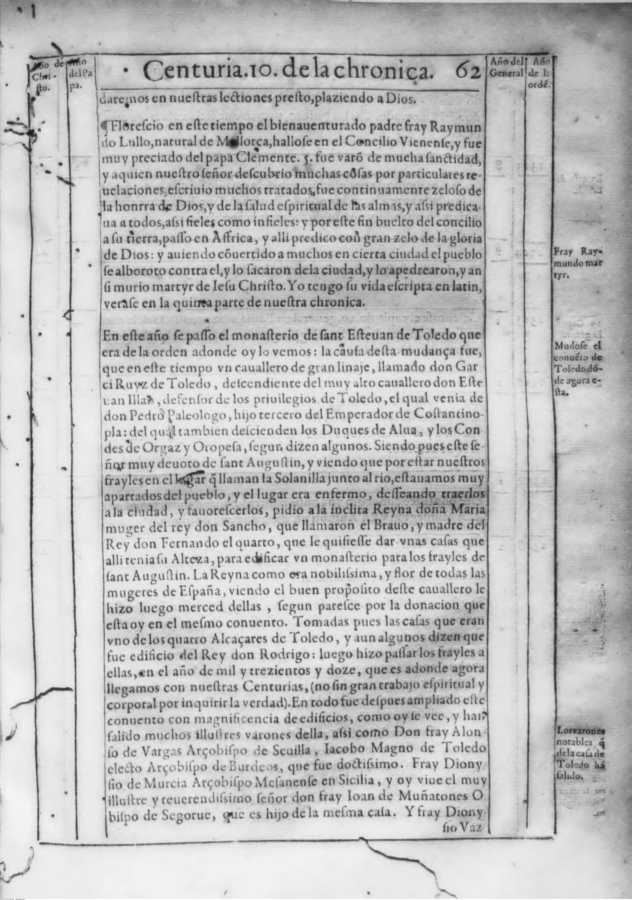 Año de Chri-sto.
Año del Papa.
Centuria.10. de la chronica. 62
Año del General
Año de la ordē.
daremos en nuestras lectiones presto, plaziendo a Dios.
¶Florescio en este tiempo el bienauenturado padre fray Raymun
do Lullo, natural de Mallorca, hallose en el Concilio Vienense, y fue
muy preciado del papa Clemente. 5. fue varō de mucha sanctidad,
y a quien nuestro señor descubrio muchas cosas por particulares re-
uelaciones, escriuio muchos tratados, fue continuamente zeloso de
la honrra de Dios, y de la salud espiritual de las almas, y assi predica
ua a todos, assi fieles como infieles: y por este fin buelto del concilio
a su tierra, passo en Affrica, y alli predico con gran zelo de la gloria
de Dios: y auiendo cōuertido a muchos en cierta ciudad el pueblo
se alboroto contra el, y lo sacaron de la ciudad, y lo apedrearon, y an
si murio martyr de Iesu Christo. Yo tengo su vida escripta en latin,
verase en la quinta parte de nuestra chronica.
Fray Ray-
mundo mar
tyr.
En este año se passo el monasterio de sant Esteuan de Toledo que
era de la orden adonde oy lo vemos: la causa desta mudança fue,
que en este tiempo vn cauallero de gran linaje, llamado don Gar
ci Ruyz de Toledo, descendiente del muy alto cauallero don Este
uan Illan, defensor de los priuilegios de Toledo, el qual venia de
don Pedro Paleologo, hijo tercero del Emperador de Costantino-
pla: del qual tambien descienden los Duques de Alua, y los Con
des de Orgaz y Oropesa, segun dizen algunos. Siendo pues este se-
ñor muy deuoto de sant Augustin, y viendo que por estar nuestros
frayles en el lugar q̄ llaman la Solanilla junto al rio, estauamos muy
apartados del pueblo, y el lugar era enfermo, desseando traerlos
a la ciudad, y fauorescerlos, pidio a la inclita Reyna doña Maria
muger del rey don Sancho, que llamaron el Brauo, y madre del
Rey don Fernando el quarto, que le quisiesse dar vnas casas que
alli tenia su Alteza, para edificar vn monasterio para los frayles de
sant Augustin. La Reyna como era nobilissima, y flor de todas las
mugeres de España, viendo el buen proposito deste cauallero le
hizo luego merced dellas, segun paresce por la donacion que
esta oy en el mesmo conuento. Tomadas pues las casas que eran
vno de los quatro Alcaçares de Toledo, y aun algunos dizen que
fue edificio del Rey don Rodrigo: luego hizo passar los frayles a
ellas, en el año de mil y trezientos y doze, que es adonde agora
llegamos con nuestras Centurias, (no sin gran trabajo espiritual y
corporal por inquirir la verdad). En todo fue despues ampliado este
conuento con magnificencia de edificios, como oy se vee, y han
salido muchos illustres varones della, assi como Don fray Alon
so de Vargas Arçobispo de Seuilla, Iacobo Magno de Toledo
electo Arçobispo de Burdeos, que fue doctissimo. Fray Diony
sio de Murcia Arçobispo Mesanense en Sicilia, y oy viue el muy
illustre y reuerendissimo señor don fray Ioan de Muñatones O
bispo de Segorue, que es hijo de la mesma casa. Y fray Diony
sio Vaz
Mudose el
conuēto de
Toledo dō-
de agora e-
sta.
Los varones
notables q̄
de la casa de
Toledo hā
salido.